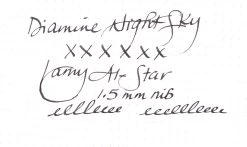 Diamine Night Sky
x x x x x x
Lamy Al-Star
1.5 mm nib
elleleee eeelleeee